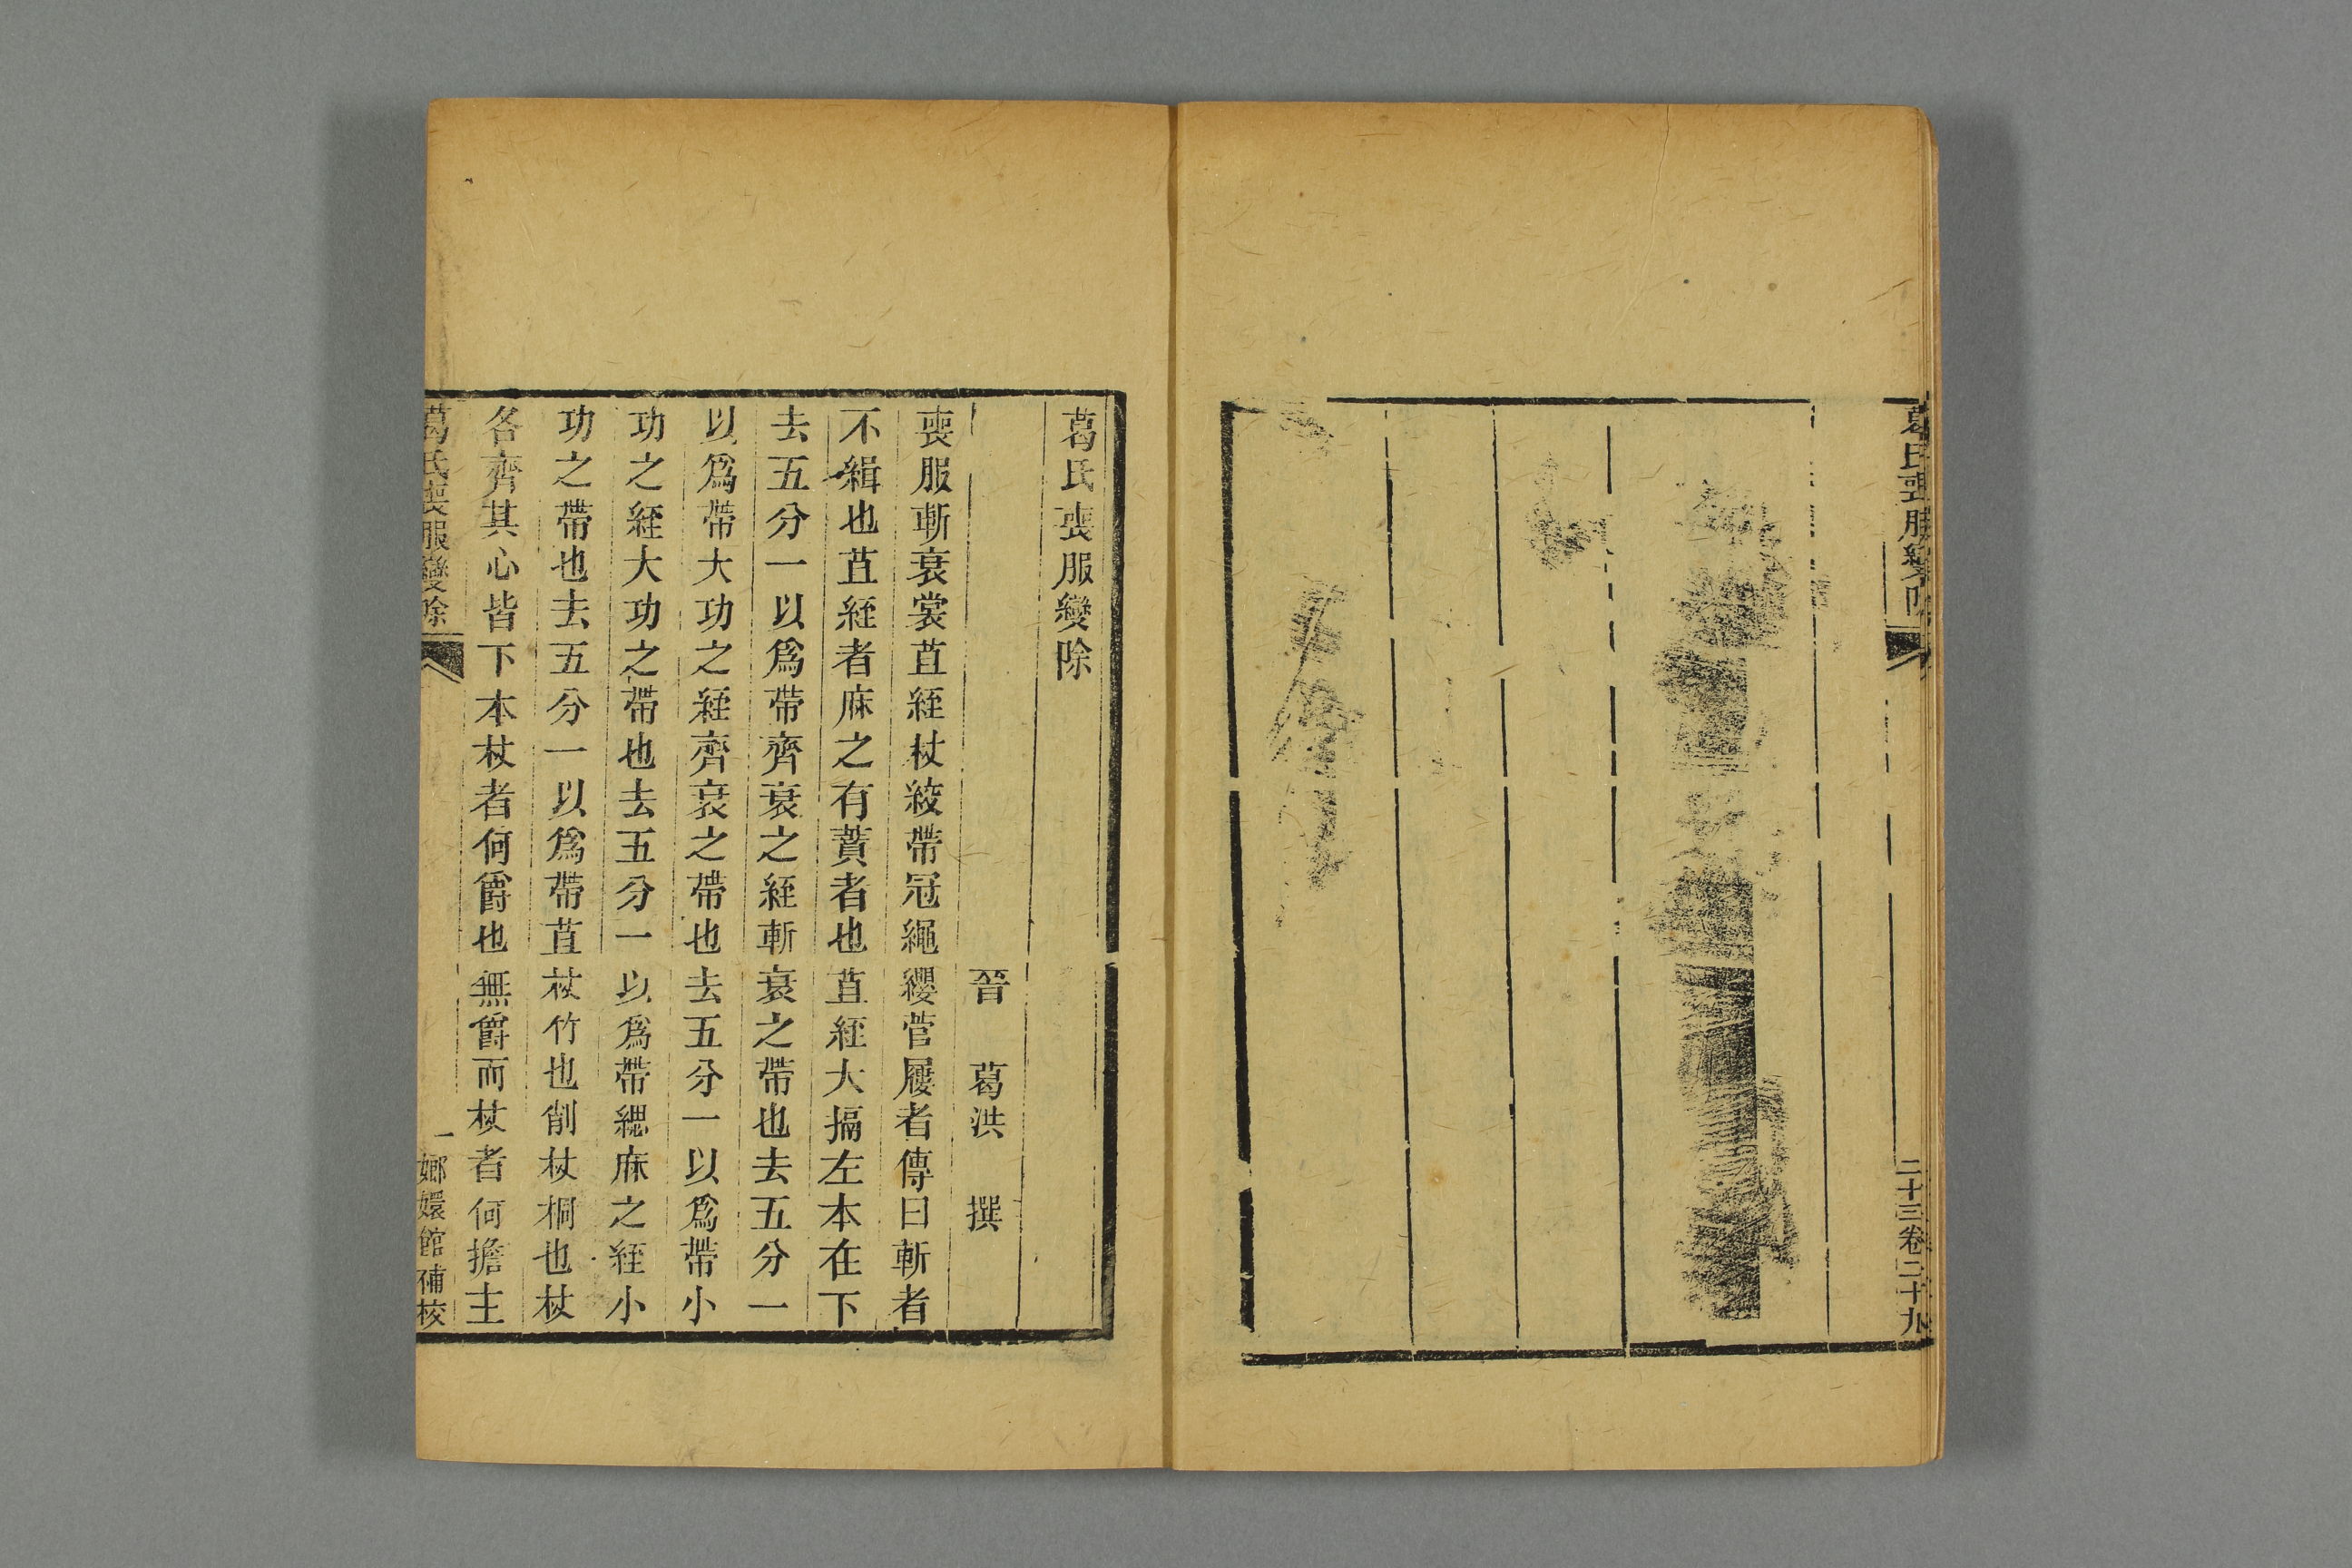 二十三卷二十九
葛氏喪服變除
晉 葛洪 撰
喪服斬衰裳苴絰杖絞帶冠繩纓菅屨者傳曰斬者
不緝也苴絰者麻之有蕡者也苴絰大搹左本在下
去五分一以爲帶齊衰之絰斬衰之帶也去五分一
以爲帶大功之絰齊衰之帶也去五分一以爲帶小
功之絰大功之帶也去五分一以爲帶緦麻之絰小
功之帶也去五分一以爲帶苴杖竹也削杖桐也杖
各齊其心皆下本杖者何爵也無爵而杖者何擔主
葛氏喪服變除 一 嫏嬛館補校